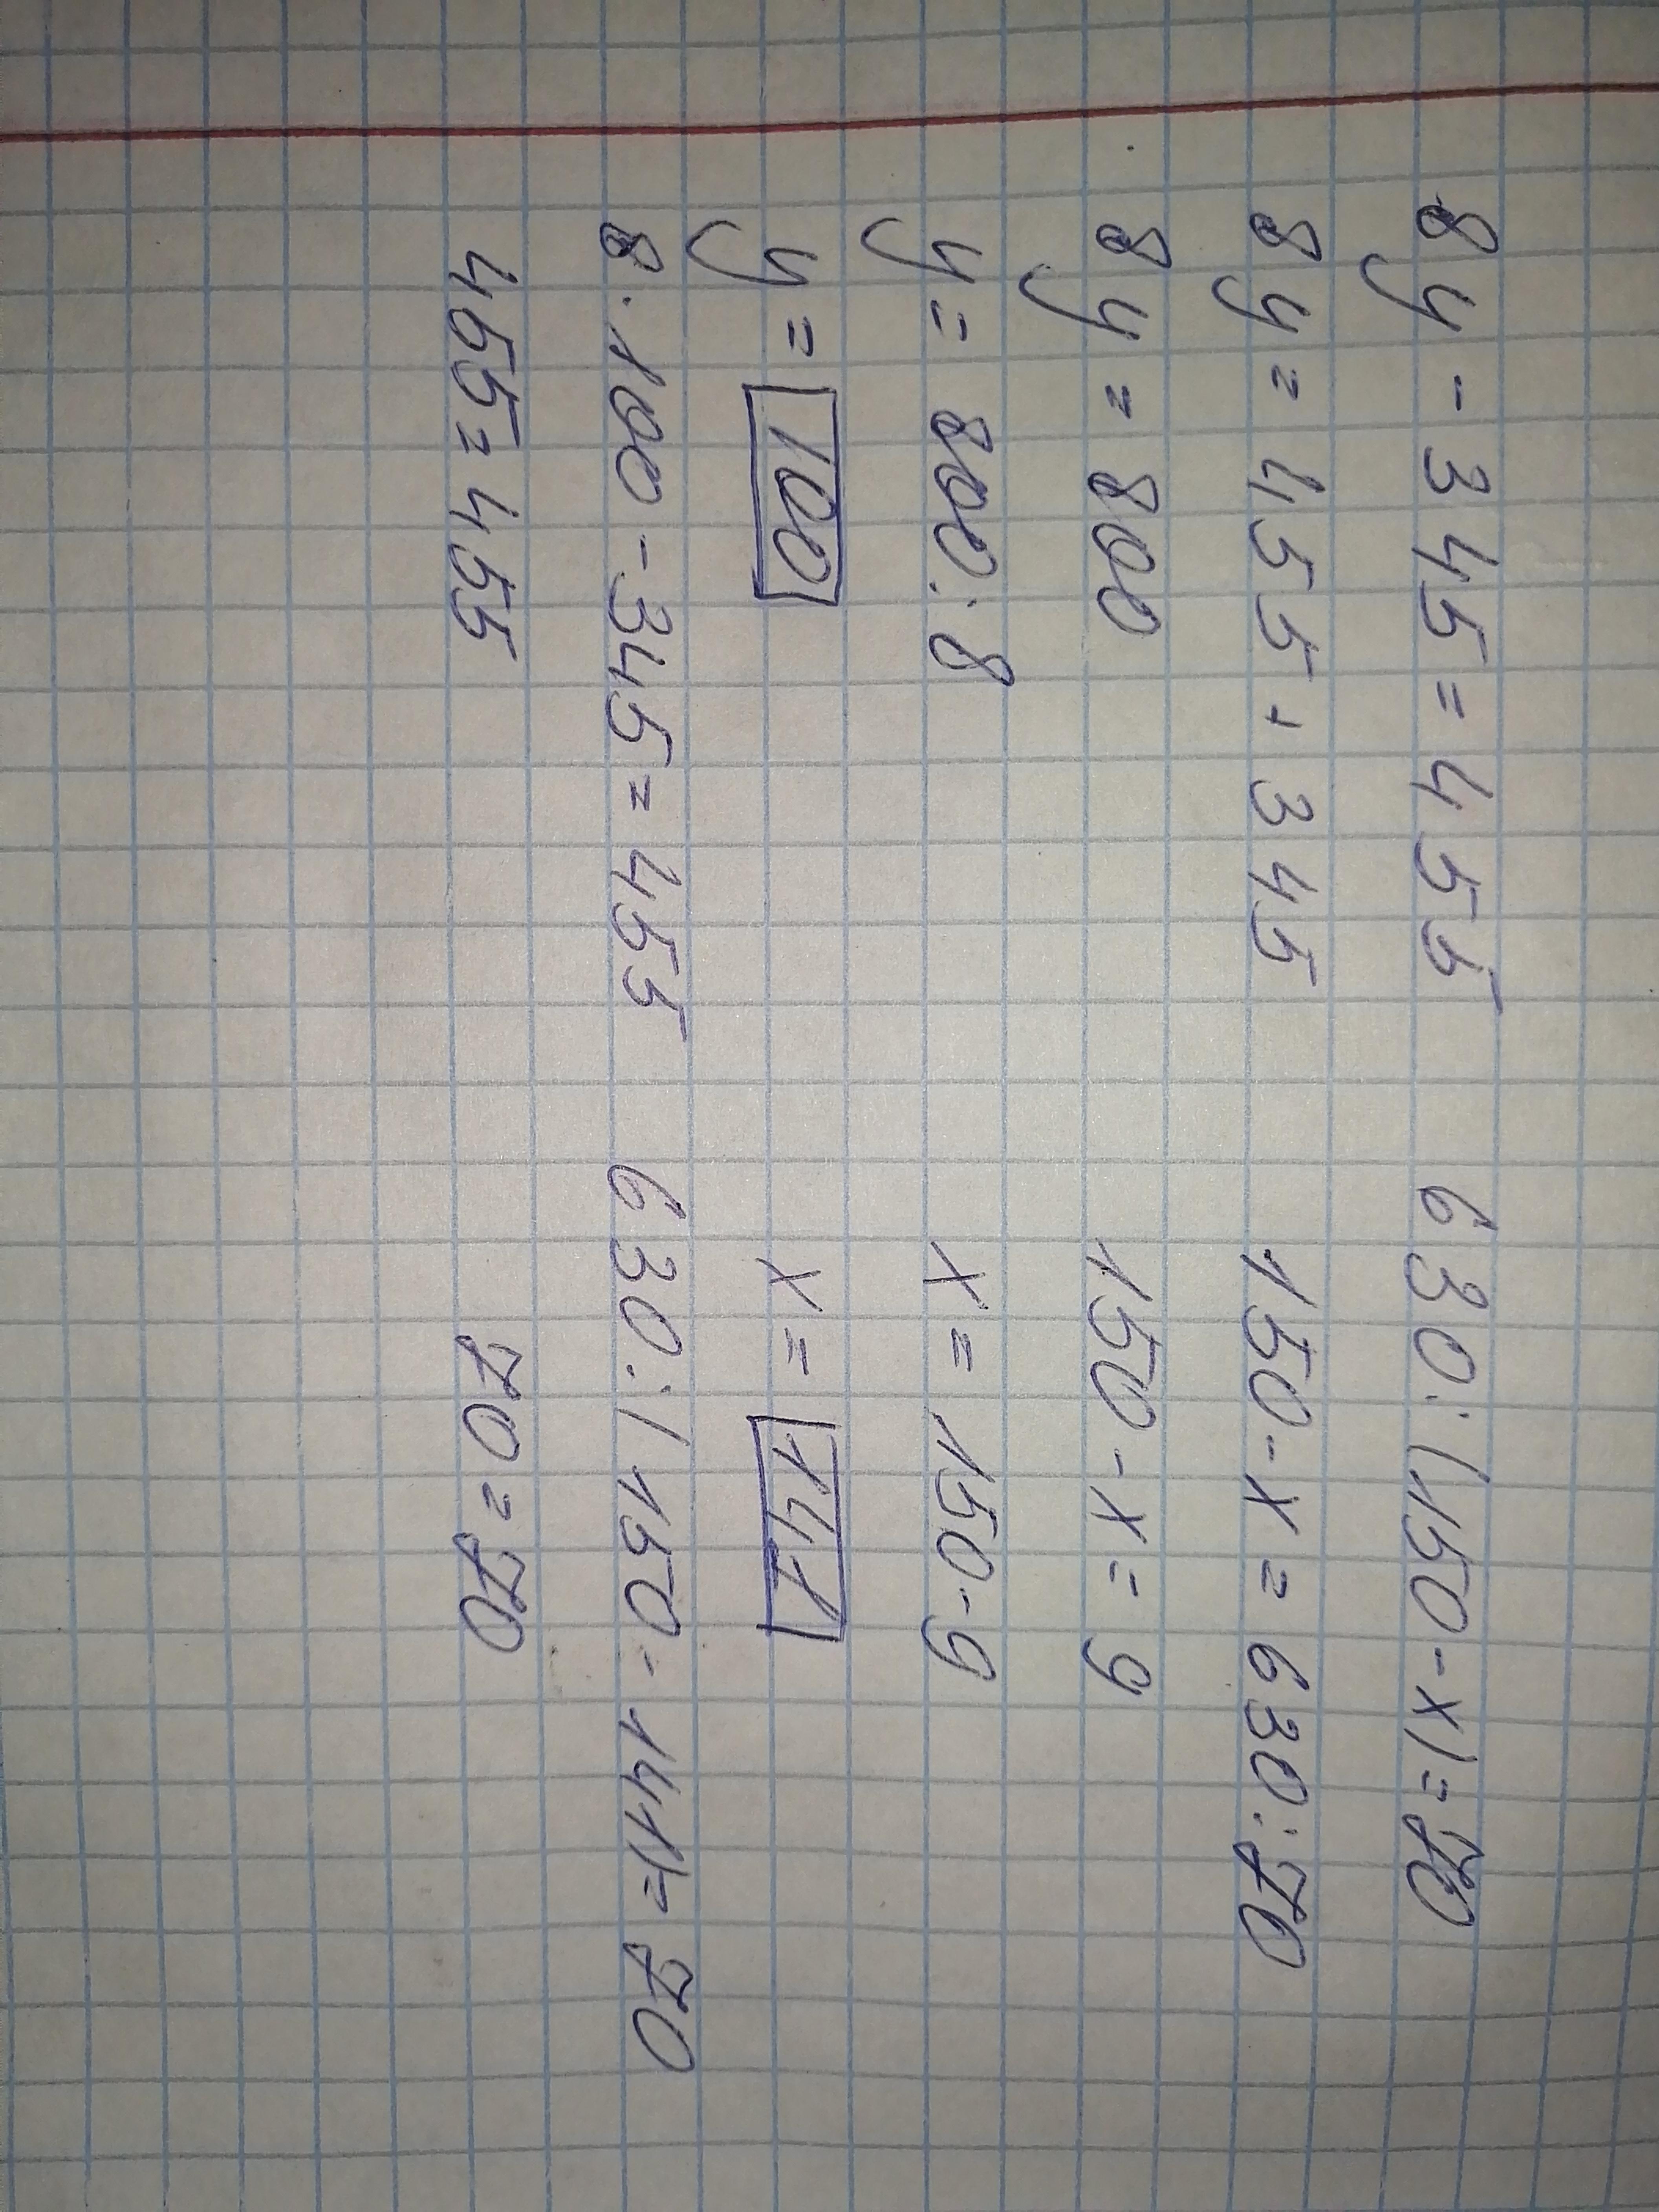 8y - 345 = 455
8y = 455 + 345
8y = 800
y = 800 : 8
y = 100
8 · 100 - 345 = 455
455 = 455
630 : (150 - x) = 70
150 - x = 630 : 70
150 - x = 9
x = 150 - 9
x = 141
630 : (150 - 141) = 70
70 = 70